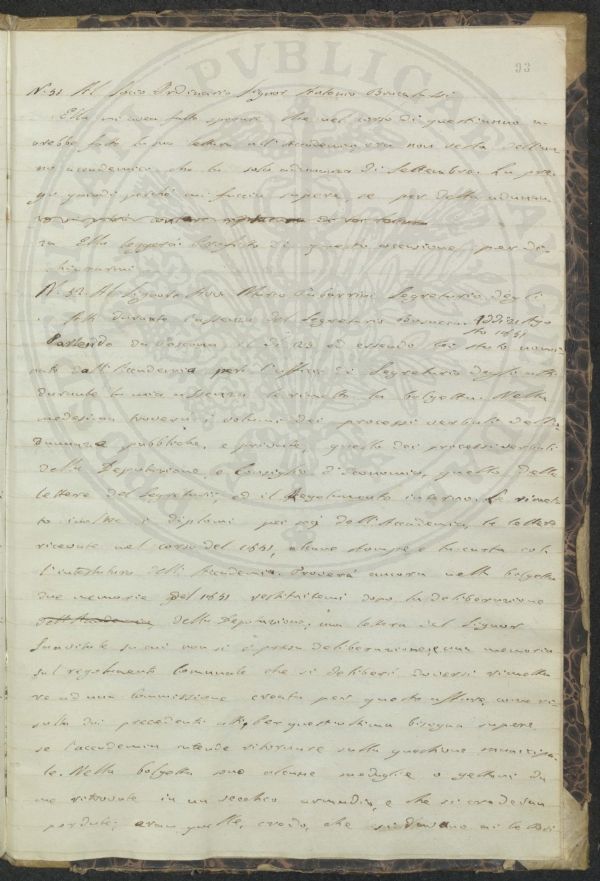 93
N.° 51 Al Socio Ordinario Signor Antonio
Ella mi aveva fatto sperare che nel corso di quest'anno a-
vrebbe fatto la sua lettura all'Accademia ora non resta dell'an-
no accademico che la sola adunanza di Settembre. La pre-
go quindi perché mi faccia sapere, se per detta adunan-
za Ella leggerà. Profitto di questa occasione per di-
chiararmi
N.° 52. Al Signore Avv. Marco Tabarrini Segretario degli
Atti durante l'assenza del Segretario Addì 21 Ago-
sto 1851
Partendo da Toscana il dì 23 ed essendo Lei stato nomi-
nato dall'Accademia per l'affare di Segretario degli atti
durante la mia assenza le rimetto la bolgetta. Nella
medesima troverà i volumi dei processi verbali delle
adunanze pubbliche, e private, questo dei processi verbali
della Deputazione, e Consiglio d'Economia, quello delle
lettere del Segretario, ed il Regolamento interno. Le rimet-
to inoltre i diplomi pei soci dell'Accademia, le lettere
ricevute nel corso del 1851, alcune stampe e la carta col-
l'intestatura dell'Accademia. Troverà ancora nella bolgetta
due memorie del 1851 restituitemi dopo la deliberazione
dell'Accademia, della Deputazione; una lettera del Signor
su cui non si è presa deliberazione, e una memoria
sul regolamento Comunale che si deliberò doversi rimette-
re ad una Commissione creata per questo affare, come ri-
sulta dai precedenti atti. Per quest'ultima bisogna sapere
se l'accademia intende ritornare sulla questione municipa-
le. Nella bolgetta sono alcune medaglie o gettoni da
me ritrovate in un vecchio armadio, e che si credevan
perdute; erano quelle, credo, che si davano ai lettori